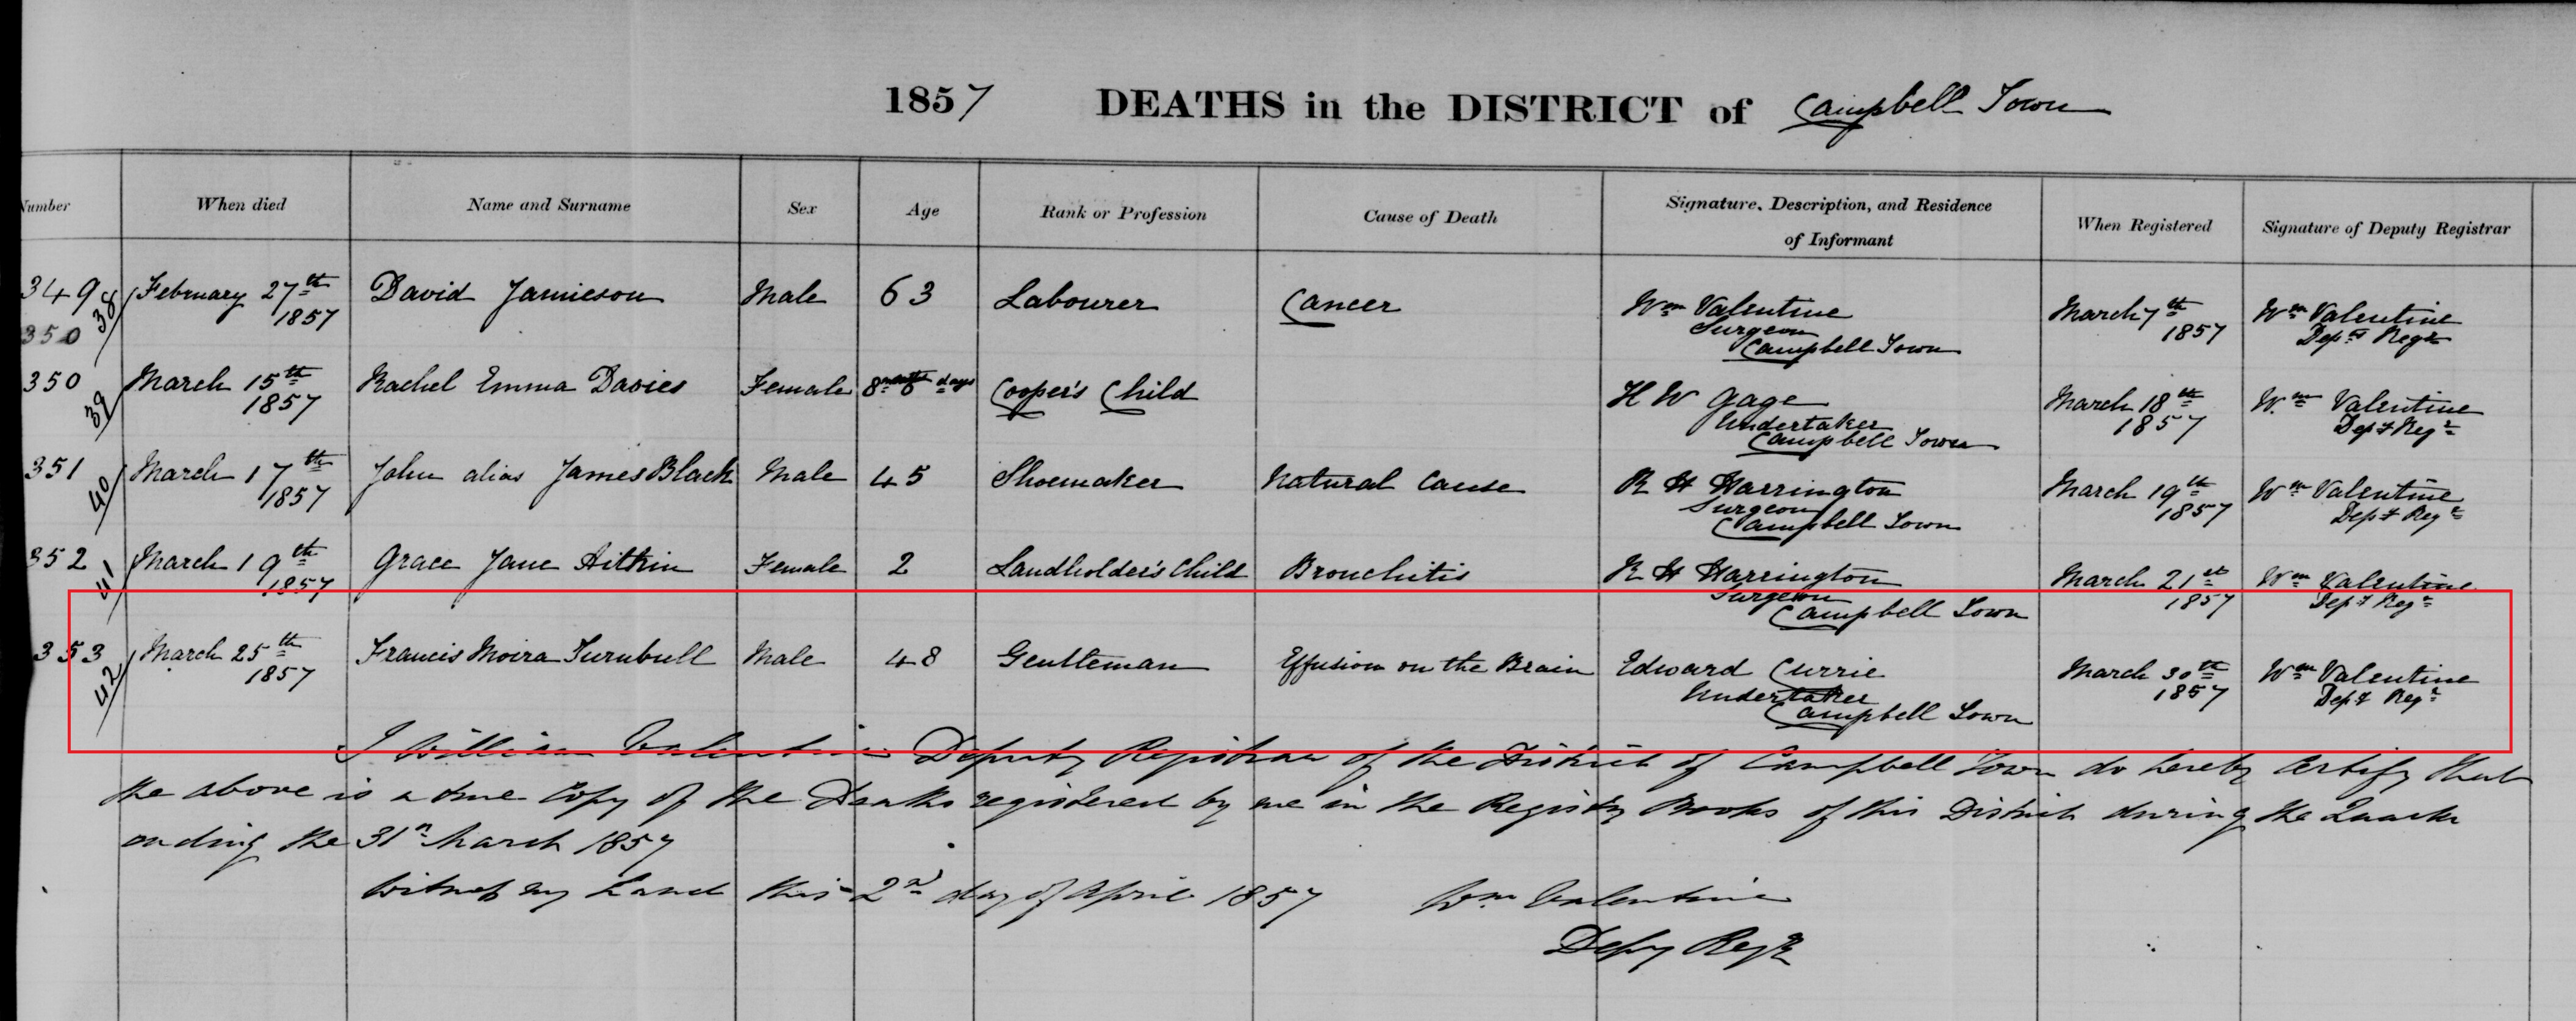 1857 DEATHS in the DISTRICT of Campbell Town
Number When died Name and Surname Sex Age Rank or Profession Cause of Death Signature, Description, and Residence of Informant When Registered Signature of Deputy Registrar
349 38 February 27th David Jamieson Male 63 Labourer Cancer Wm Valentine March 7th Wm Valentine
350 1857 Surgeon 1857 Depy Regr
Campbell Town
350 39 March 15th Rachel Emma Davies Female 8 months 8 days Cooper's Child H W Gage March 18th Wm Valentine
1857 Undertaker 1857 Depy Regr
Campbell Town
351 40 March 17th John alias James Black Male 45 Shoemaker Natural Cause R H Harrington March 19th Wm Valentine
1857 Surgeon 1857 Depy Regr
Campbell Town
352 41 March 19th Grace Jane Aitkin Female 2 Landholder's Child Bronchitis R H Harrington March 21st Wm Valentine
1857 Surgeon 1857 Depy Regr
Campbell Town
353 42 March 25th Francis Moira Turnbull Male 48 Gentleman Effusion on the Brain Edward Currie March 30th Wm Valentine
1857 Undertaker 1857 Depy Regr
Campbell Town
I William Valentine Deputy Registrar of the District of Campbell Town do hereby certify that
the above is a true Copy of the Deaths registered by me in the Registry Books of this District during the Quarter
ending the 31st March 1857
Witness my hand this 2nd day of April 1857 Wm Valentine
Depy Regr